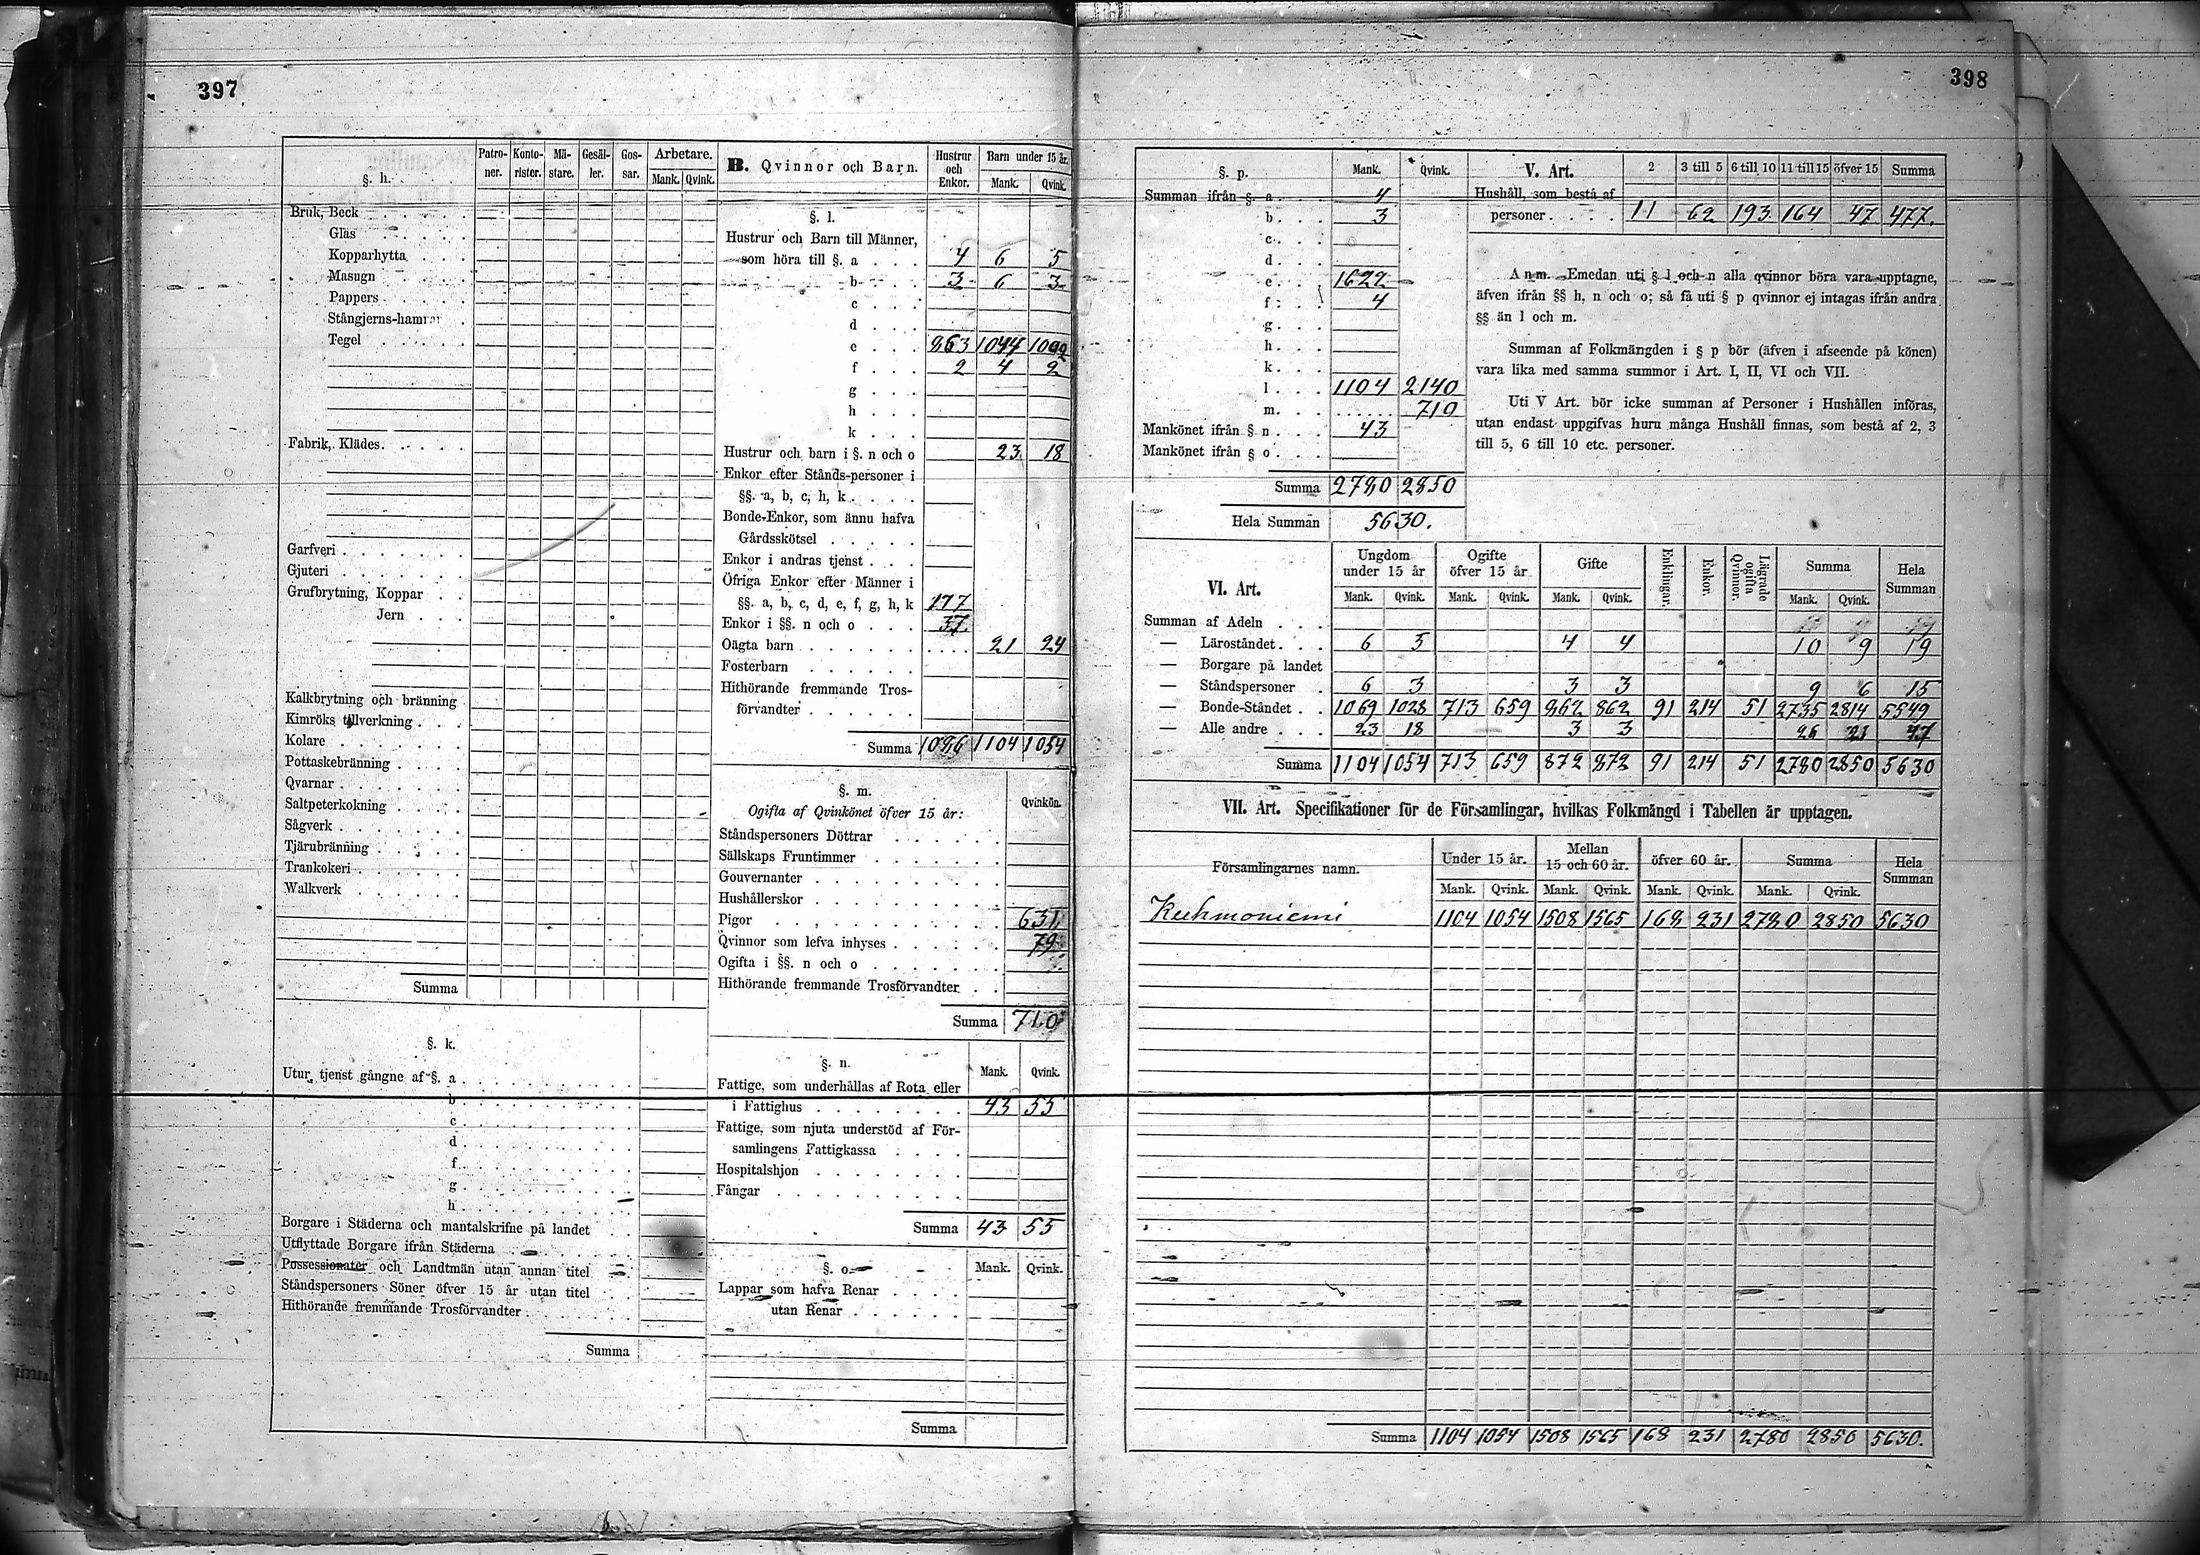 397
§. h. Patro-ner. Konto-rister. Mä-stare. Gesäl-ler. Gos-sar. Arbetare. Mank. Qvink.
Bruk, Beck
Glas
Kopparhytta
Masugn
Pappers
Stångjerns-hamrar
Tegel
Fabrik, Klädes
Garfveri
Gjuteri
Grufbrytning, Koppar
Jern
Kalkbrytning och bränning
Kimröks tillverkning
Kolare
Pottaskebränning
Qvarnar
Saltpeterkokning
Sågverk
Tjärubränning
Trankokeri
Walkverk
Summa
§. k.
Utur tjenst gångne af §. a
b
c
d
f
g
h
Borgare i Städerna och mantalskrifne på landet
Utflyttade Borgare ifrån Städerna
Possessionater och Landtmän utan annan titel
Ståndspersoners Söner öfver 15 år utan titel
Hithörande fremmande Trosförvandter
Summa
B. Qvinnor och Barn. Hustrur och Enkor. Barn under 15 år. Mank. Qvink.
§. l.
Hustrur och Barn till Männer,
som höra till §. a 4 6 5
b 3 6 3
c
d
e 863 1044 1002
f 2 4 2
g
h
k
Hustrur och barn i §. n och o 23 18
Enkor efter Stånds-personer i
§§. a, b, c, h, k
Bonde-Enkor, som ännu hafva
Gårdsskötsel
Enkor i andras tjenst
Öfriga Enkor efter Männer i
§§. a, b, c, d, e, f, g, h, k 177
Enkor i §§. n och o 37
Oägta barn 21 24
Fosterbarn
Hithörande fremmande Tros-
förvandter
Summa 1086 1104 1054
§. m.
Ogifta af Qvinkönet öfver 15 år: Qvinkön.
Ståndspersoners Döttrar
Sällskaps Fruntimmer
Gouvernanter
Hushållerskor
Pigor 631
Qvinnor som lefva inhyses 79
Ogifta i §§. n och o
Hithörande fremmande Trosförvandter
Summa 710
§. n. Mank. Qvink.
Fattige, som underhållas af Rota eller
i Fattighus 43 55
Fattige, som njuta understöd af För-
samlingens Fattigkassa
Hospitalshjon
Fångar
Summa 43 55
§. o. Mank. Qvink.
Lappar som hafva Renar
utan Renar
Summa
398
§. p. Mank. Qvink.
Summan ifrån §. a 4
b 3
c
d
e 1622
f 4
g
h
k
l 1104 2140
m 710
Mankönet ifrån § n 43
Mankönet ifrån § o
Summa 2780 2850
Hela Summan 5630.
V. Art. 2 3 till 5 6 till 10 11 till 15 öfver 15 Summa
Hushåll, som bestå af
personer 11 62 193 164 47 477.
Anm. Emedan uti § l och n alla qvinnor böra vara upptagne,
äfven ifrån §§ h, n och o; så få uti § p qvinnor ej intagas ifrån andra
§§ än l och m.
Summan af Folkmängden i § p bör (äfven i afseende på könen)
vara lika med samma summor i Art. I, II, VI och VII.
Uti V Art. bör icke summan af Personer i Hushållen införas,
utan endast uppgifvas huru många Hushåll finnas, som bestå af 2, 3
till 5, 6 till 10 etc. personer.
VI. Art. Ungdom under 15 år Ogifte öfver 15 år Gifte Enklingar. Enkor. Lägrade ogifta Qvinnor. Summa Hela Summan
Mank. Qvink. Mank. Qvink. Mank. Qvink. Mank. Qvink.
Summan af Adeln
— Läroståndet 6 5 4 4 10 9 19
— Borgare på landet
— Ståndspersoner 6 3 3 3 9 6 15
— Bonde-Ståndet 1069 1028 713 659 862 862 91 214 51 2735 2814 5549
— Alle andre 23 18 3 3 26 21 47
Summa 1104 1054 713 659 872 872 91 214 51 2780 2850 5630
VII. Art. Specifikationer för de Församlingar, hvilkas Folkmängd i Tabellen är upptagen.
Församlingarnes namn. Under 15 år. Mellan 15 och 60 år. öfver 60 år. Summa Hela Summan
Mank. Qvink. Mank. Qvink. Mank. Qvink. Mank. Qvink.
Kuhmoniemi 1104 1054 1508 1565 168 231 2780 2850 5630
Summa 1104 1054 1508 1565 168 231 2780 2850 5630.